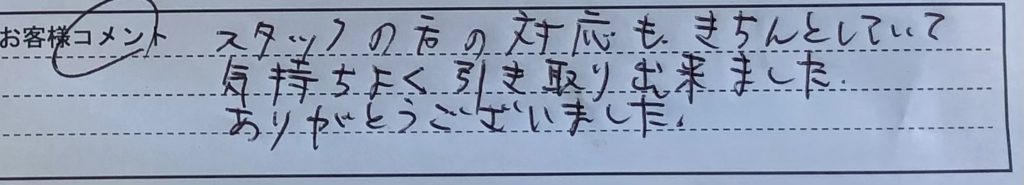 お客様コメント
スタッフの方の対応も、きちんとしていて
気持ちよく引き取り出来ました.
ありがとうございました.